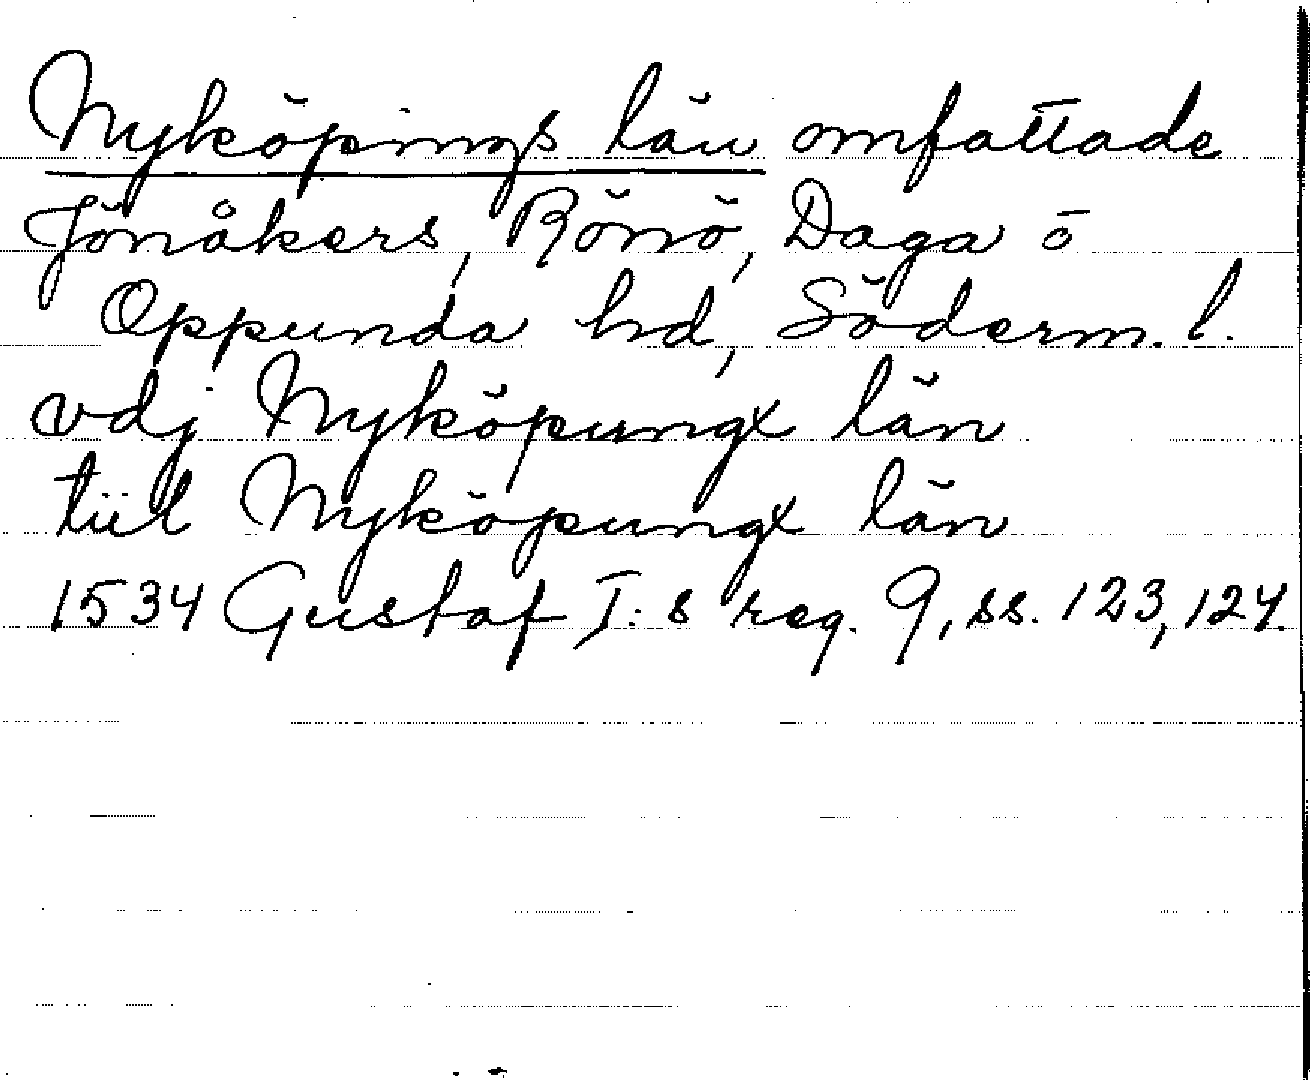 Nyköpings län omfattade
Jönåkers, Rönö, Daga o
Oppunda hd, Söderm. l.
vdj Nyköpungx län
tiil Nyköpungx län
1534 Gustaf I:s reg. 9, ss. 123, 124.